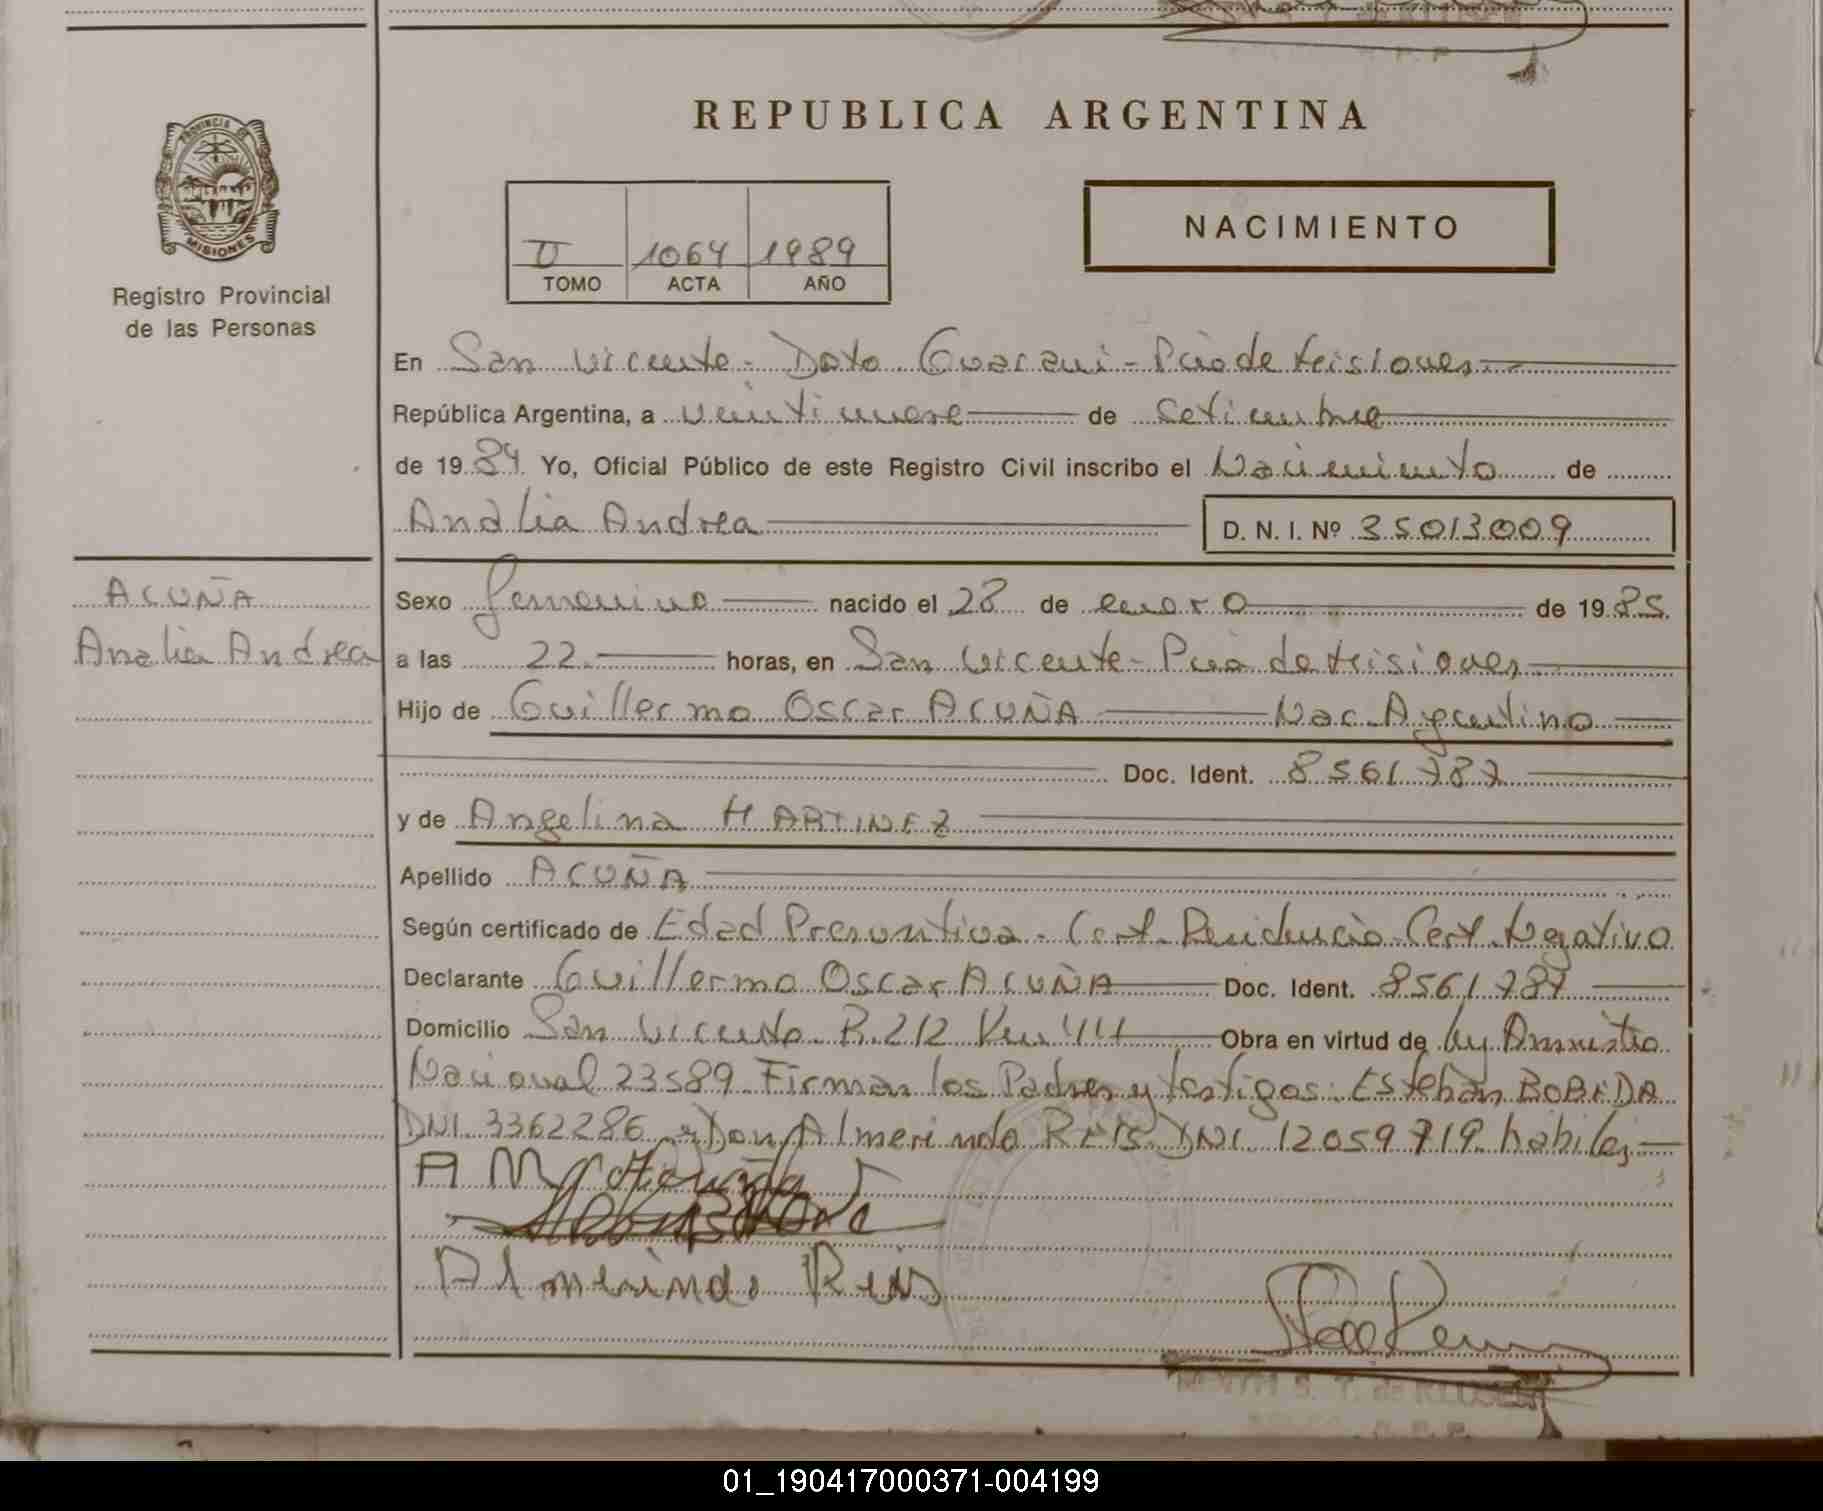 REPUBLICA ARGENTINA
PROVINCIA DE MISIONES
Registro Provincial
de las Personas
II 1064 1989
TOMO ACTA AÑO
NACIMIENTO
En San Vicente - Dpto Guarani - Pcia de Misiones
República Argentina, a veintinueve de setiembre
de 1989 Yo, Oficial Público de este Registro Civil inscribo el Nacimiento de
Analia Andrea D. N. I. Nº 35013009
ACUÑA
Analia Andrea
Sexo femenino nacido el 28 de enero de 1985.
a las 22 horas, en San Vicente - Pcia de Misiones
Hijo de Guillermo Oscar ACUÑA Nac. Argentino
Doc. Ident. 8561787
y de Angelina MARTINEZ
Apellido ACUÑA
Según certificado de Edad Presuntiva - Cert. Residencia - Cert. Negativo
Declarante Guillermo Oscar ACUÑA Doc. Ident. 8561787
Domicilio San Vicente R. 212 Km Obra en virtud de ley Amnistia
Nacional 23589 Firman los Padres y testigos: Esteban BOBEDA
DNI 3362286 y Don Almerindo REIS DNI. 12059719 habiles
A M Acuña
Almerindo Reis
01_190417000371-004199